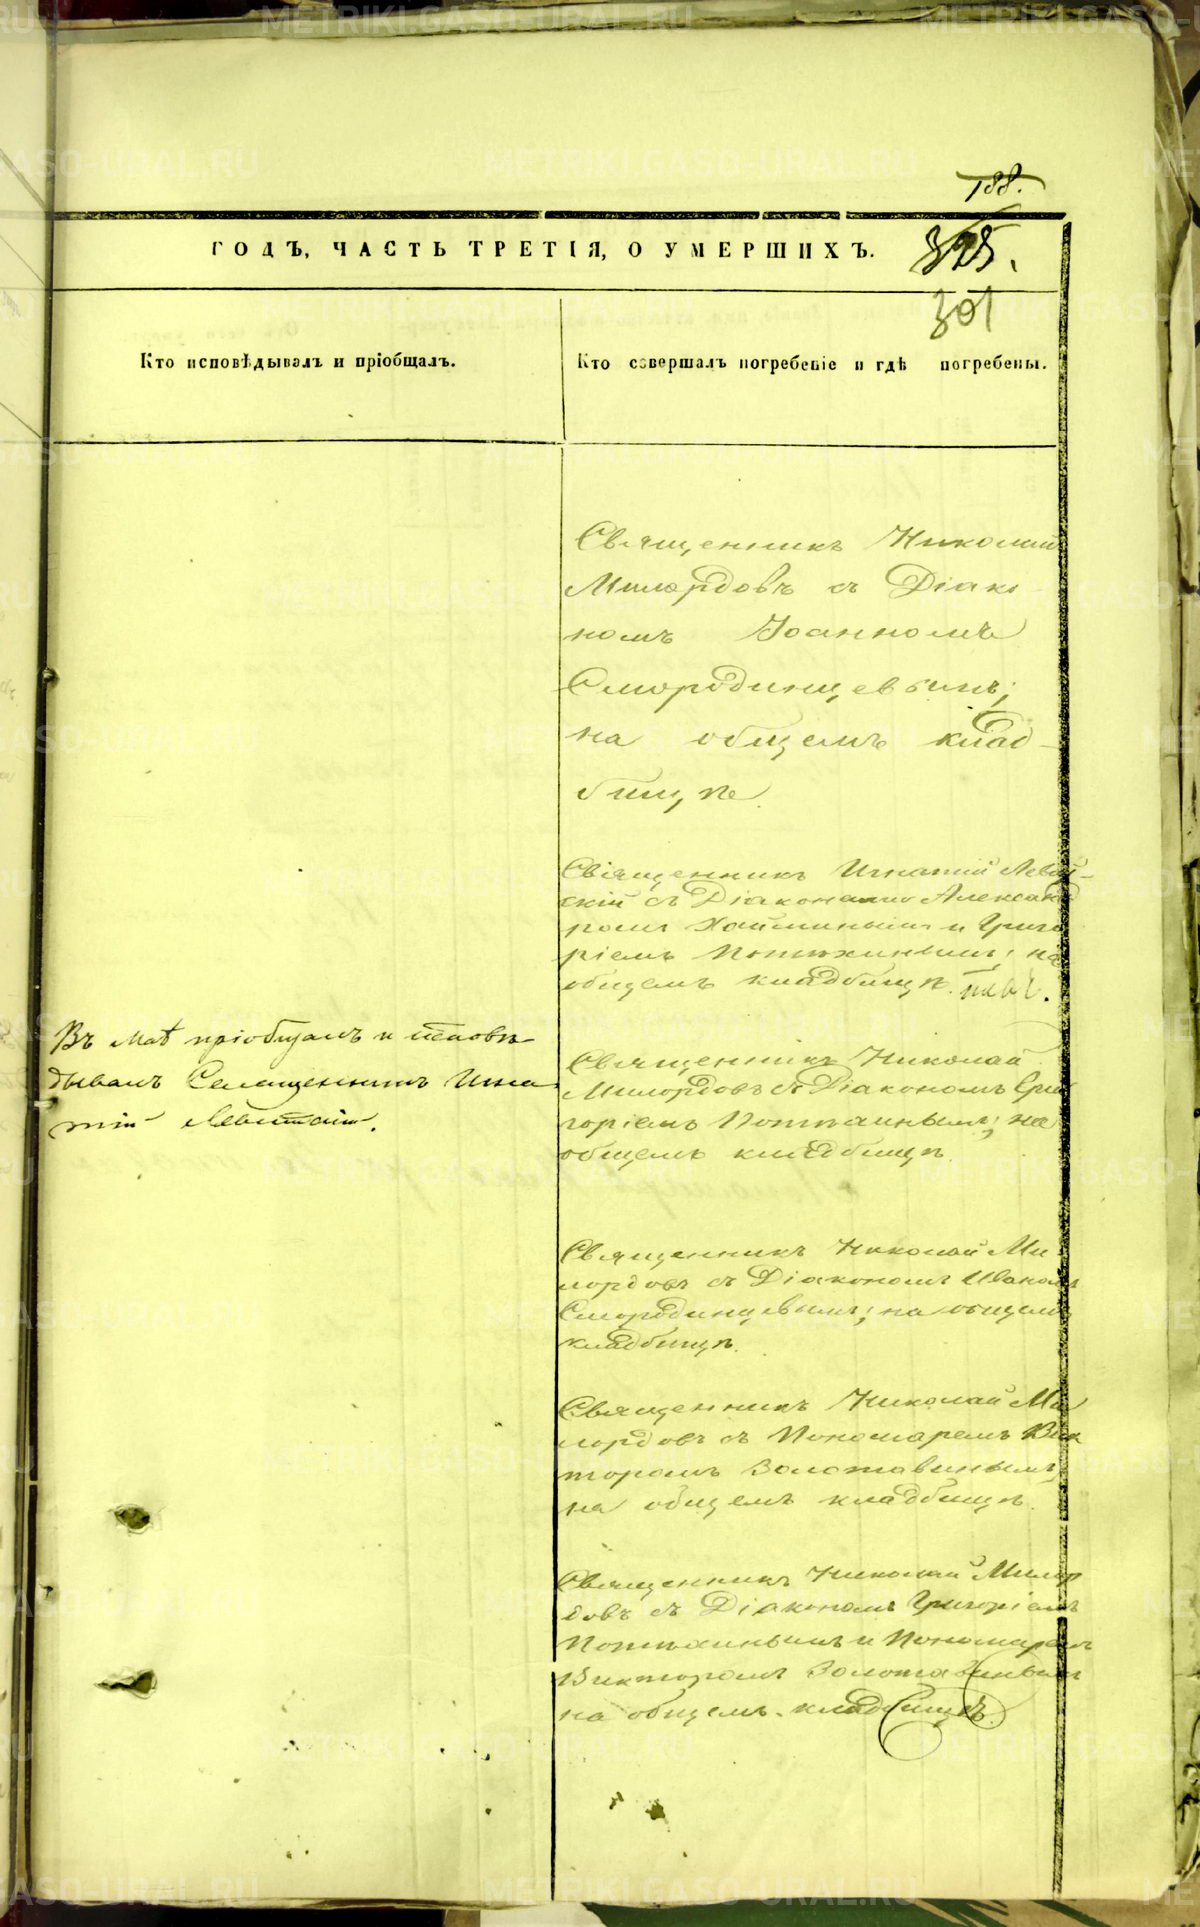 188.
ГОДЪ, ЧАСТЬ ТРЕТІЯ, О УМЕРШИХЪ.
301
Кто исповѣдывалъ и пріобщалъ.
Кто совершалъ погребеніе и гдѣ погребены.
Священникъ Николай
Милордовъ съ Діако
номъ Іоанномъ
Смородинцевымъ;
на общемъ клад-
бищѣ.
Священникъ Игнатій Левит-
скій съ Діаконами Александ
ромъ и Григо
ріемъ Потѣхинымъ; на
общемъ кладбищѣ.
Въ Маѣ пріобщалъ и исповѣ-
дывалъ Священникъ Игна
тій Левитскій.
Священникъ Николай
Милордовъ съ Діакономъ Гри
горіемъ Потѣхинымъ; на
общемъ кладбищѣ.
Священникъ Николай Ми
лордовъ съ Діакономъ Иваномъ
Смородинцевымъ; на общемъ
кладбищѣ.
Священникъ Николай Ми
лордовъ съ Пономаремъ Вик
торомъ Золотавинымъ;
на общемъ кладбищѣ.
Священникъ Николай Милор
довъ съ Діакономъ Григоріемъ
Потѣхинымъ и Пономаремъ
Викторомъ Золотавинымъ
на общемъ кладбищѣ.